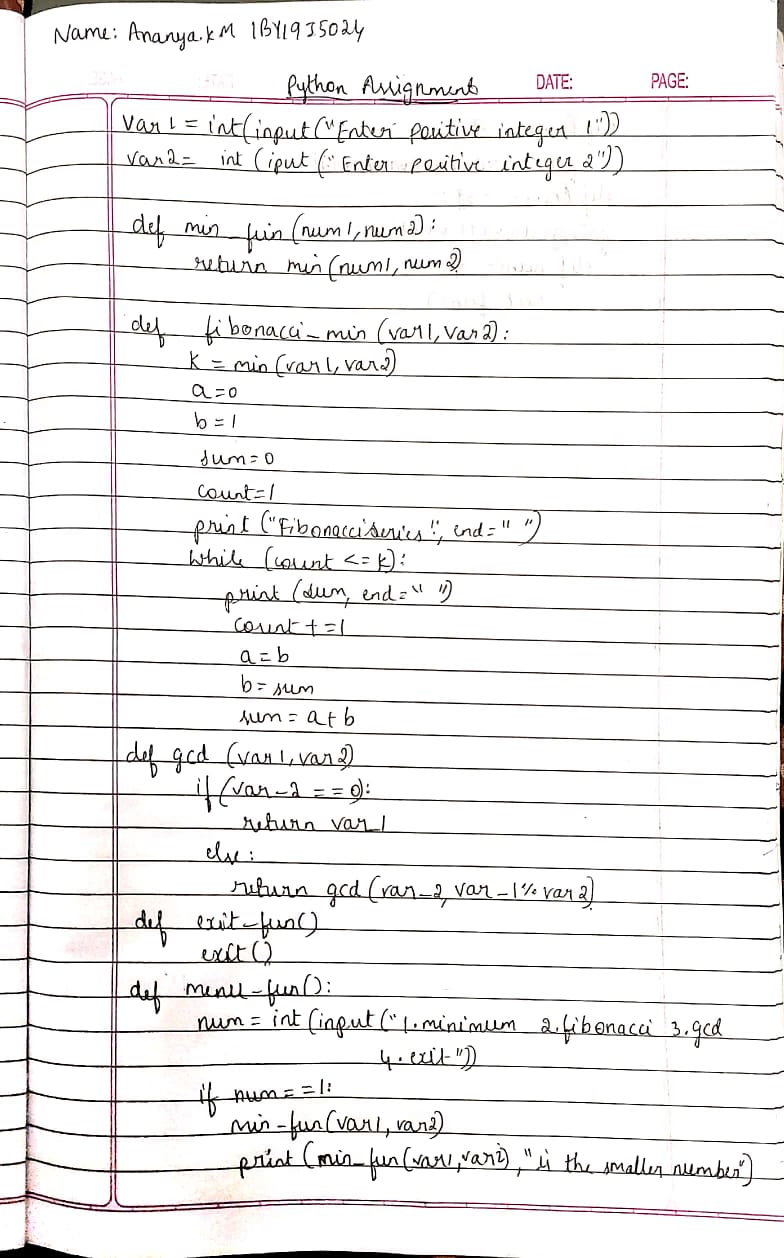 Name: Ananya.K M 1BY19IS024
Python Assignment DATE: PAGE:
Var 1 = int(input("Enter positive integer 1"))
var2= int (iput ("Enter positive integer 2"))
def min_fun (num1, num2):
return min (num1, num2)
def fibonacci_min (var1, var2):
K = min (var1, var2)
a=0
b=1
sum=0
count=1
print ("Fibonacci series", end=" ")
While (count <= k):
print (sum, end=" ")
count +=1
a=b
b=sum
sum = a+b
def gcd (var1, var2)
if (var_2 == 0):
return var_1
else:
return gcd (var_2, var_1 % var2)
def exit_fun()
exit()
def menu_fun():
num = int (input ("1.minimum 2.fibonacci 3.gcd
4.exit"))
if num==1:
min_fun(var1, var2)
print (min_fun(var1, var2), "is the smaller number")